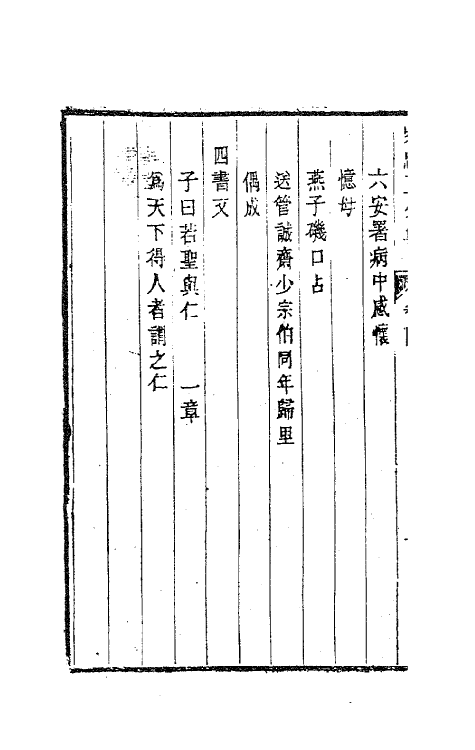 六安署病中感懷
憶母
燕子磯口占
送管誠齋少宗伯同年歸里
偶成
四書文
子曰若聖與仁　一章
爲天下得人者謂之仁